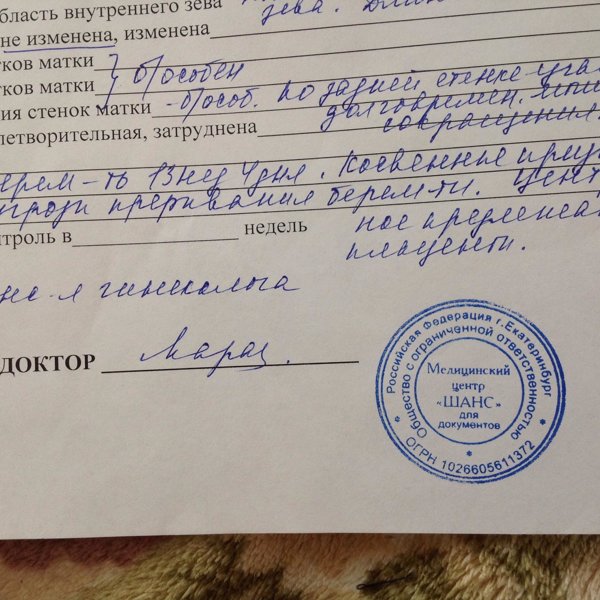 бласть внутреннего зева
зева.
не изменена, изменена
тков матки
тков матки } б/особен
ия стенок матки - б/особ. по задней стенке
долговремен.
летворительная, затруднена сокращения.
13 нед 4 дня. Косвенные
угрозы прерывания берем-ти. Цент
троль в недель
ное предлежа
плаценты.
гинеколога
ДОКТОР
Российская Федерация г.Екатеринбург
Общество с ограниченной ответственностью
Медицинский
центр
«ШАНС»
для
документов
* ОГРН 1026605611372 *